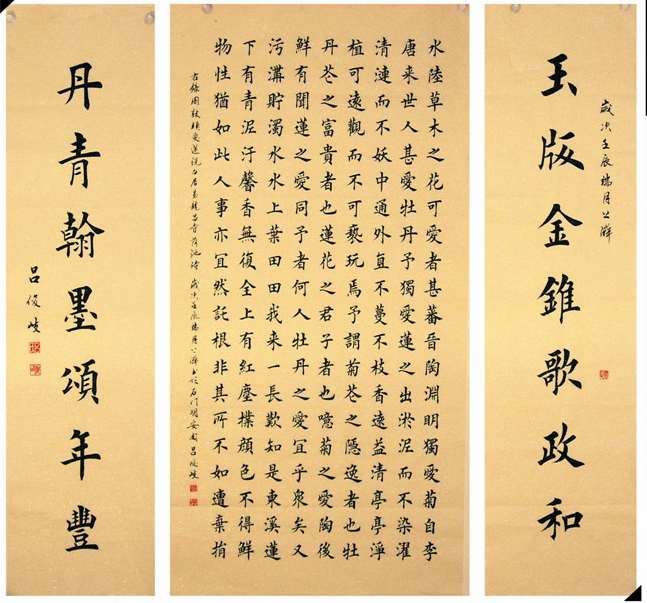 歲次壬辰端月上澣
玉版金錐歌政和
水陸草木之花可愛者甚蕃晉陶淵明獨愛菊自李
唐来世人甚愛牡丹予獨愛蓮之出淤泥而不染濯
清漣而不妖中通外直不蔓不枝香遠益清亭亭淨
植可遠觀而不可褻玩焉予謂菊花之隱逸者也牡
丹花之富貴者也蓮花之君子者也噫菊之愛陶後
鮮有聞蓮之愛同予者何人牡丹之愛宜乎衆矣又
污溝貯濁水水上葉田田我来一長歎知是東溪蓮
下有青泥汙馨香無復全上有紅塵撲顏色不得鮮
物性猶如此人事亦宜然託根非其所不如遭棄捐
右錄周敦頤愛蓮說白居易龍昌寺荷池诗歲次壬辰端月上澣書於石門明安園呂俊岐
丹青翰墨頌年豐
呂俊岐